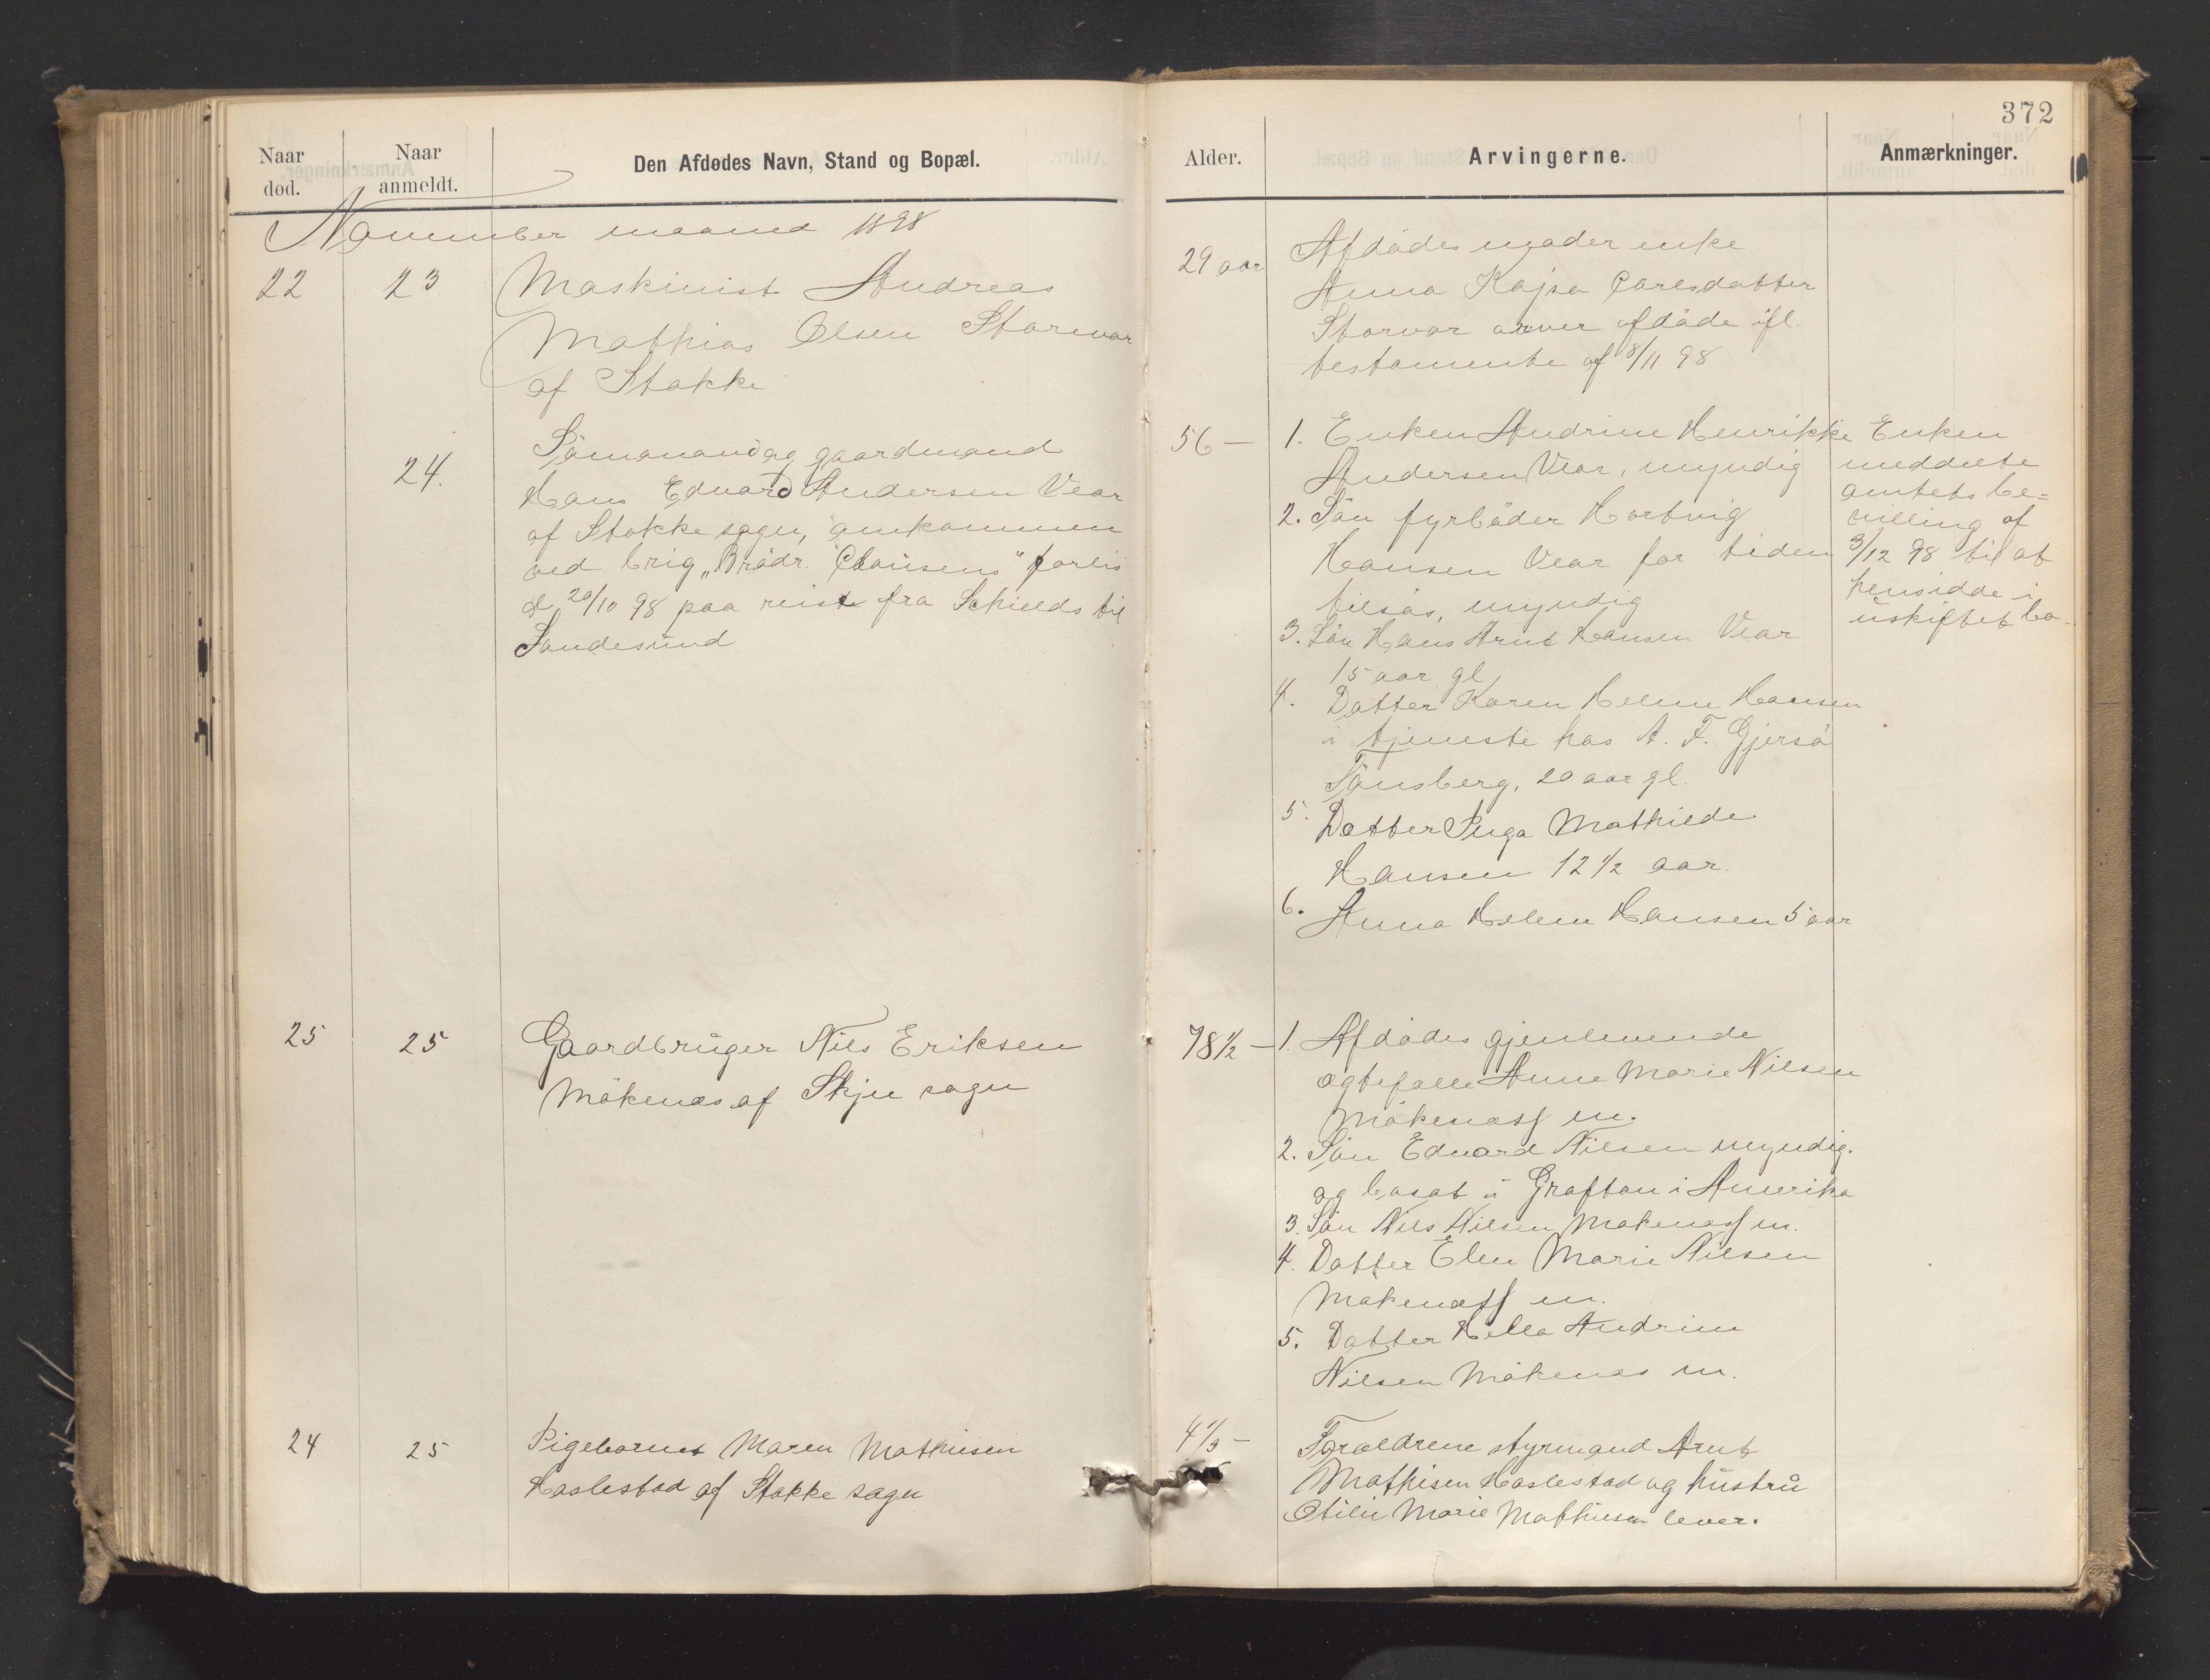 372
Naar død.
Naar anmeldt.
Den Afdødes Navn, Stand og Bopæl.
Alder.
Arvingerne.
Anmærkninger.
November maaned 1898
22
23
Maskinist Andreas
Mathias Olsen Storevar
af Stokke
29 aar
Afdødes moder enke
Anna Kajsa Carlsdatter
Storvar arver afdøde ifl.
testamente af 8/11 98
24.
Sømand og gaardmand
Hans Edvard Andersen Vear
af Stokke sogn, omkommen
ved brig „Brødr. Clausens" forlis
d 20/10 98 paa reise fra Schields til
Sandesund
56 —
1. Enken Andrine Henrikke
Andersen Vear, myndig
2. Søn fyrbøder Hartvig
Hansen Vear for tiden
tilsøs, myndig
3. Søn Hans Arnt Hansen Vear
15 aar gl
4. Datter Karen Helene Hansen
i tjeneste hos A. F. Gjersø
Tønsberg, 20 aar gl.
5. Datter Inga Mathilde
Hansen 12 1/2 aar.
6. Anna Helene Hansen 5 aar
Enken
meddelte
amtets be=
villing af
3/12 98 til at
hensidde i
uskiftet bo.
25
25
Gaardbruger Nils Eriksen
Mökenæs af Skjee sogn
78 1/2 —
1. Afdødes gjenlevende
ægtefælle Anne Marie Nilsen
Mökenæss m.
2. Søn Edvard Nilsen myndig.
og bosat i Grafton i Amerika
3. Søn Nils Nilsen Mökenæss m.
4. Datter Elen Marie Nilsen
Mökenæss m.
5. Datter Hella Andrine
Nilsen Mökenæs m.
24
25
Pigebarnet Maren Mathisen
Haslestad af Stokke sogn
4 1/3 —
Forældrene styrmand Arnt
Mathisen Haslestad og hustru
Otilie Marie Mathisen lever.